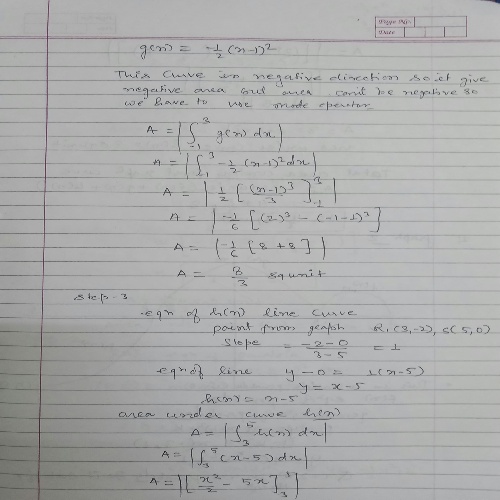 Page No.:
Date
g(x) = -1/2 (x-1)²
This curve in negative direction so it give
negative area but area can't be negative so
we have to use mode operator
A = |∫₋₁³ g(x) dx|
A = |∫₋₁³ -1/2 (x-1)² dx|
A = |1/2 [(x-1)³/3]₋₁³|
A = |-1/6 [(2)³ - (-1-1)³]
A = |-1/6 [8+8]|
A = 8/3 sq unit
Step-3
eqn of h(x) line curve
point from graph R,(3,-2), S(5,0)
slope = -2-0/3-5 = 1
eqn of line y-0 = 1(x-5)
y = x-5
h(x) = x-5
area under curve h(x)
A = |∫₃⁵ h(x) dx|
A = |∫₃⁵ (x-5) dx|
A = |[x²/2 - 5x]₃